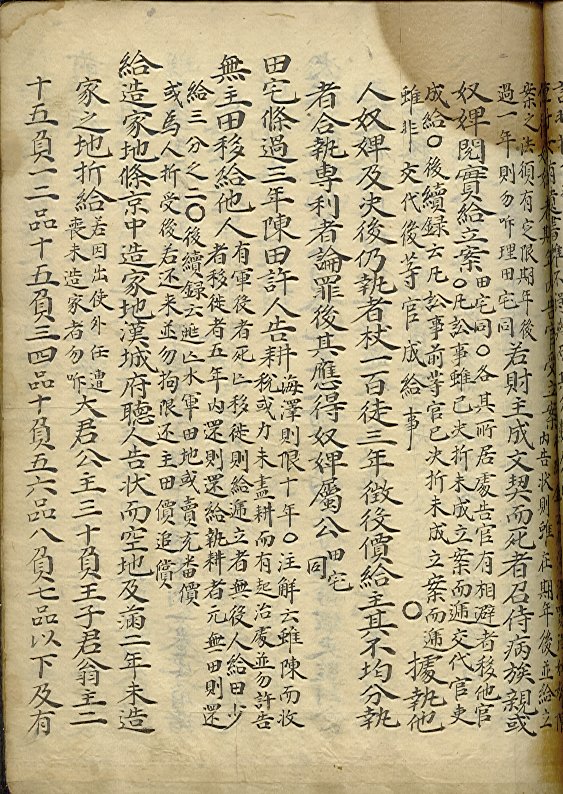 案之法須有定限期年後
內告狀則雖在期年後並給立
過一年則勿咋理田宅同
若財主成文契而死者召侍病族親或
奴婢閱實給立案
田宅同〇各其所居處告官有相避者移他官
〇凡訟事雖已決折未成立案而遞交代官更
成給〇後續錄云凡訟事前等官已決折未成立案而遞
雖非交代後等官成給事
〇據執他
人奴婢及決後仍執者杖一百徒三年徵役價給主其不均分執
者合執專利者論罪後其應得奴婢屬公
田宅
同
田宅條過三年陳田許人告耕
海澤則限十年〇注解云雖陳而收
稅或力未盡耕而有起治處並勿許告
無主田移給他人
有軍役者死亡移徙則給遞立者無役人給田少
者移徙者五年內還則還給執耕者元無田則還
給三分之二〇後續錄云逃亡水軍田地或賣充番價
或爲人折受後若還來並勿拘限還主田價追償
給造家地條京中造家地漢城府聽人告狀而空地及滿二年未造
家之地折給
若因出使外任遭
喪未造家者勿咋
大君公主三十負王子君翁主二
十五負一二品十五負三四品十負五六品八負七品以下及有